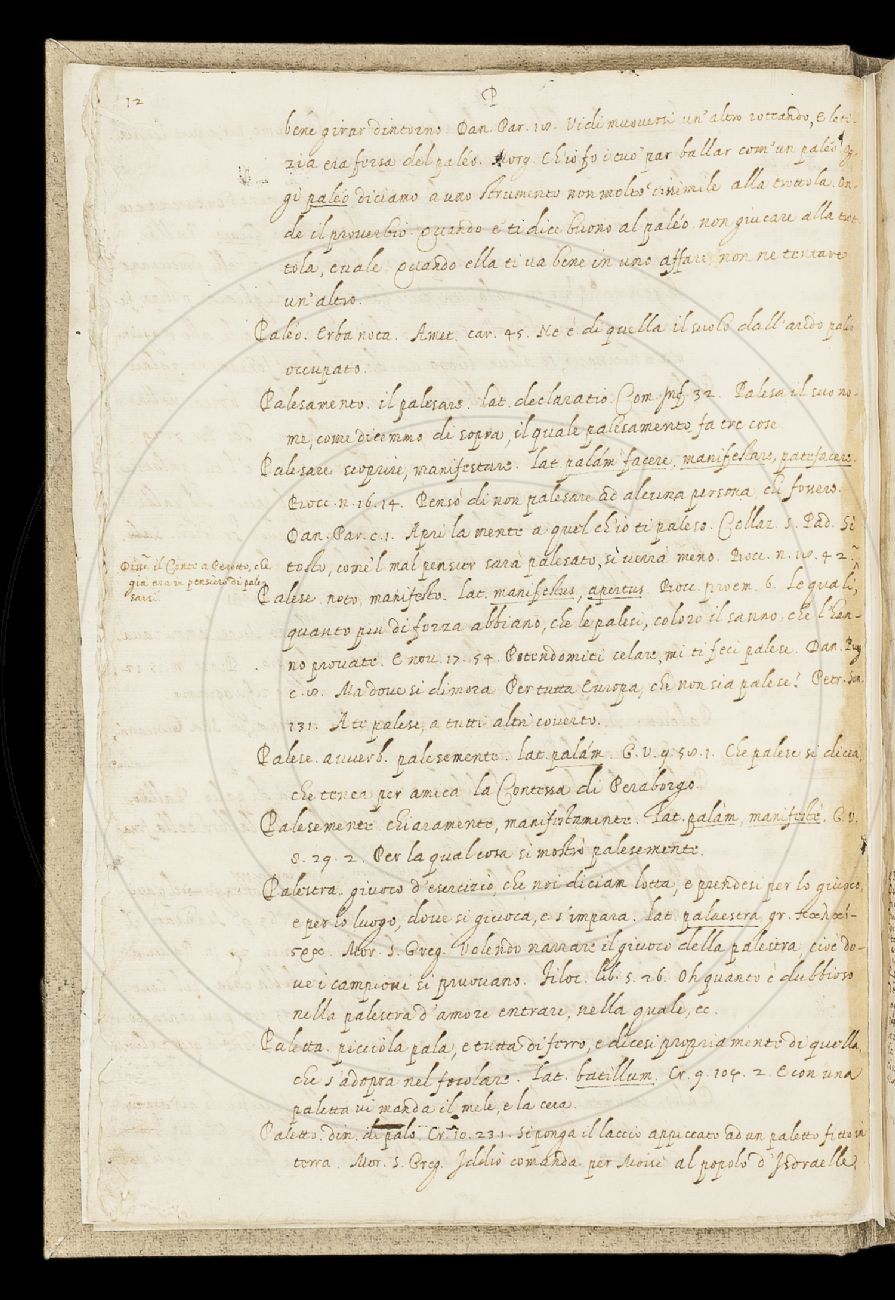 12
P
bene girar dintorno. Dan. Par. 18. Vidi muoversi un' altro rotando, E leti-
zia era fersa del paléo. Morg. Ch' io fo i tuo' par ballar com' un paléo. Og-
gi paléo diciamo a uno strumento non molto dissimile alla trottola. On-
de il proverbio. Quando e' ti dice buono al paléo non giucare alla trot-
tola, e vale. Quando ella ti va bene in uno affare, non ne tentare
un' altro.
Paléo. Erba nota. Amet. car. 45. Ne è di quella il suolo dall' arido paléo
occupato.
Palesamento. il palesare. lat. declaratio. Com. Inf. 32. Palesa il suo no-
me, come dicemmo di sopra, il quale palesamento fa tre cose.
Palesare. scoprire, manifestare. lat. palám facere, manifestare, patefacere.
Bocc. n. 16. 14. Pensò di non palesare ad alcuna persona, chi fossero.
Dan. Par. c. 1. Apri la mente a quel ch' io ti paleso. Collaz. S. Pad. Sì
tosto, come 'l mal pensier sarà palesato, sì verrà meno. Bocc. n. 18. 42.
Disse il Conte a Perotto, che
già era in pensiero di pale-
sarsi.
Palese. noto, manifesto. lat. manifestus, apertus. Bocc. proem. 6. Le quali,
quanto più di forza abbiano, che le palesi, coloro il sanno, che l' han-
no provate. E nov. 17. 54. Potendomiti celare, mi ti feci palese. Dan. Purg.
c. 8. Ma dove si dimora Per tutta Europa, che non sia palese? Petr. Son.
131. A te palese, a tutti altri coverto.
Palese. avverb. palesemente. lat. palám. G. V. 9. 58. 1. Che palese si dicea,
che tenea per amica la Contessa di Peraborgo.
Palesemente. chiaramente, manifestamente. Lat. palàm, manifestè. G. V.
8. 29. 2. Per la qual cosa si mostrò palesemente.
Palestra. giuoco d' esercizio, che noi diciam lotta, e prendesi per lo giuoco,
e per lo luogo, dove si giuoca, e s' impara. lat. palaestra gr. παλαί-
στρα. Mor. S. Greg. Volendo narrare il giuoco della palestra cioè do-
ve i campioni si pruovano. Filoc. lib. 5. 26. Oh quanto è dubbioso
nella palestra d' amore entrare, nella quale, ec.
Paletta. picciola pala, e tutta di ferro, e dicesi propriamente di quella,
che s' adopra nel focolare. Lat. batillum. Cr. 9. 104. 2. E con una
paletta vi manda il mele, e la cera.
Paletto. dim. di palo. Cr. 10. 23. 1. Si ponga il laccio appiccato ad un paletto fitto in
terra. Mor. S. Greg. Iddio comanda per Moisè al popolo d' Isdraelle,